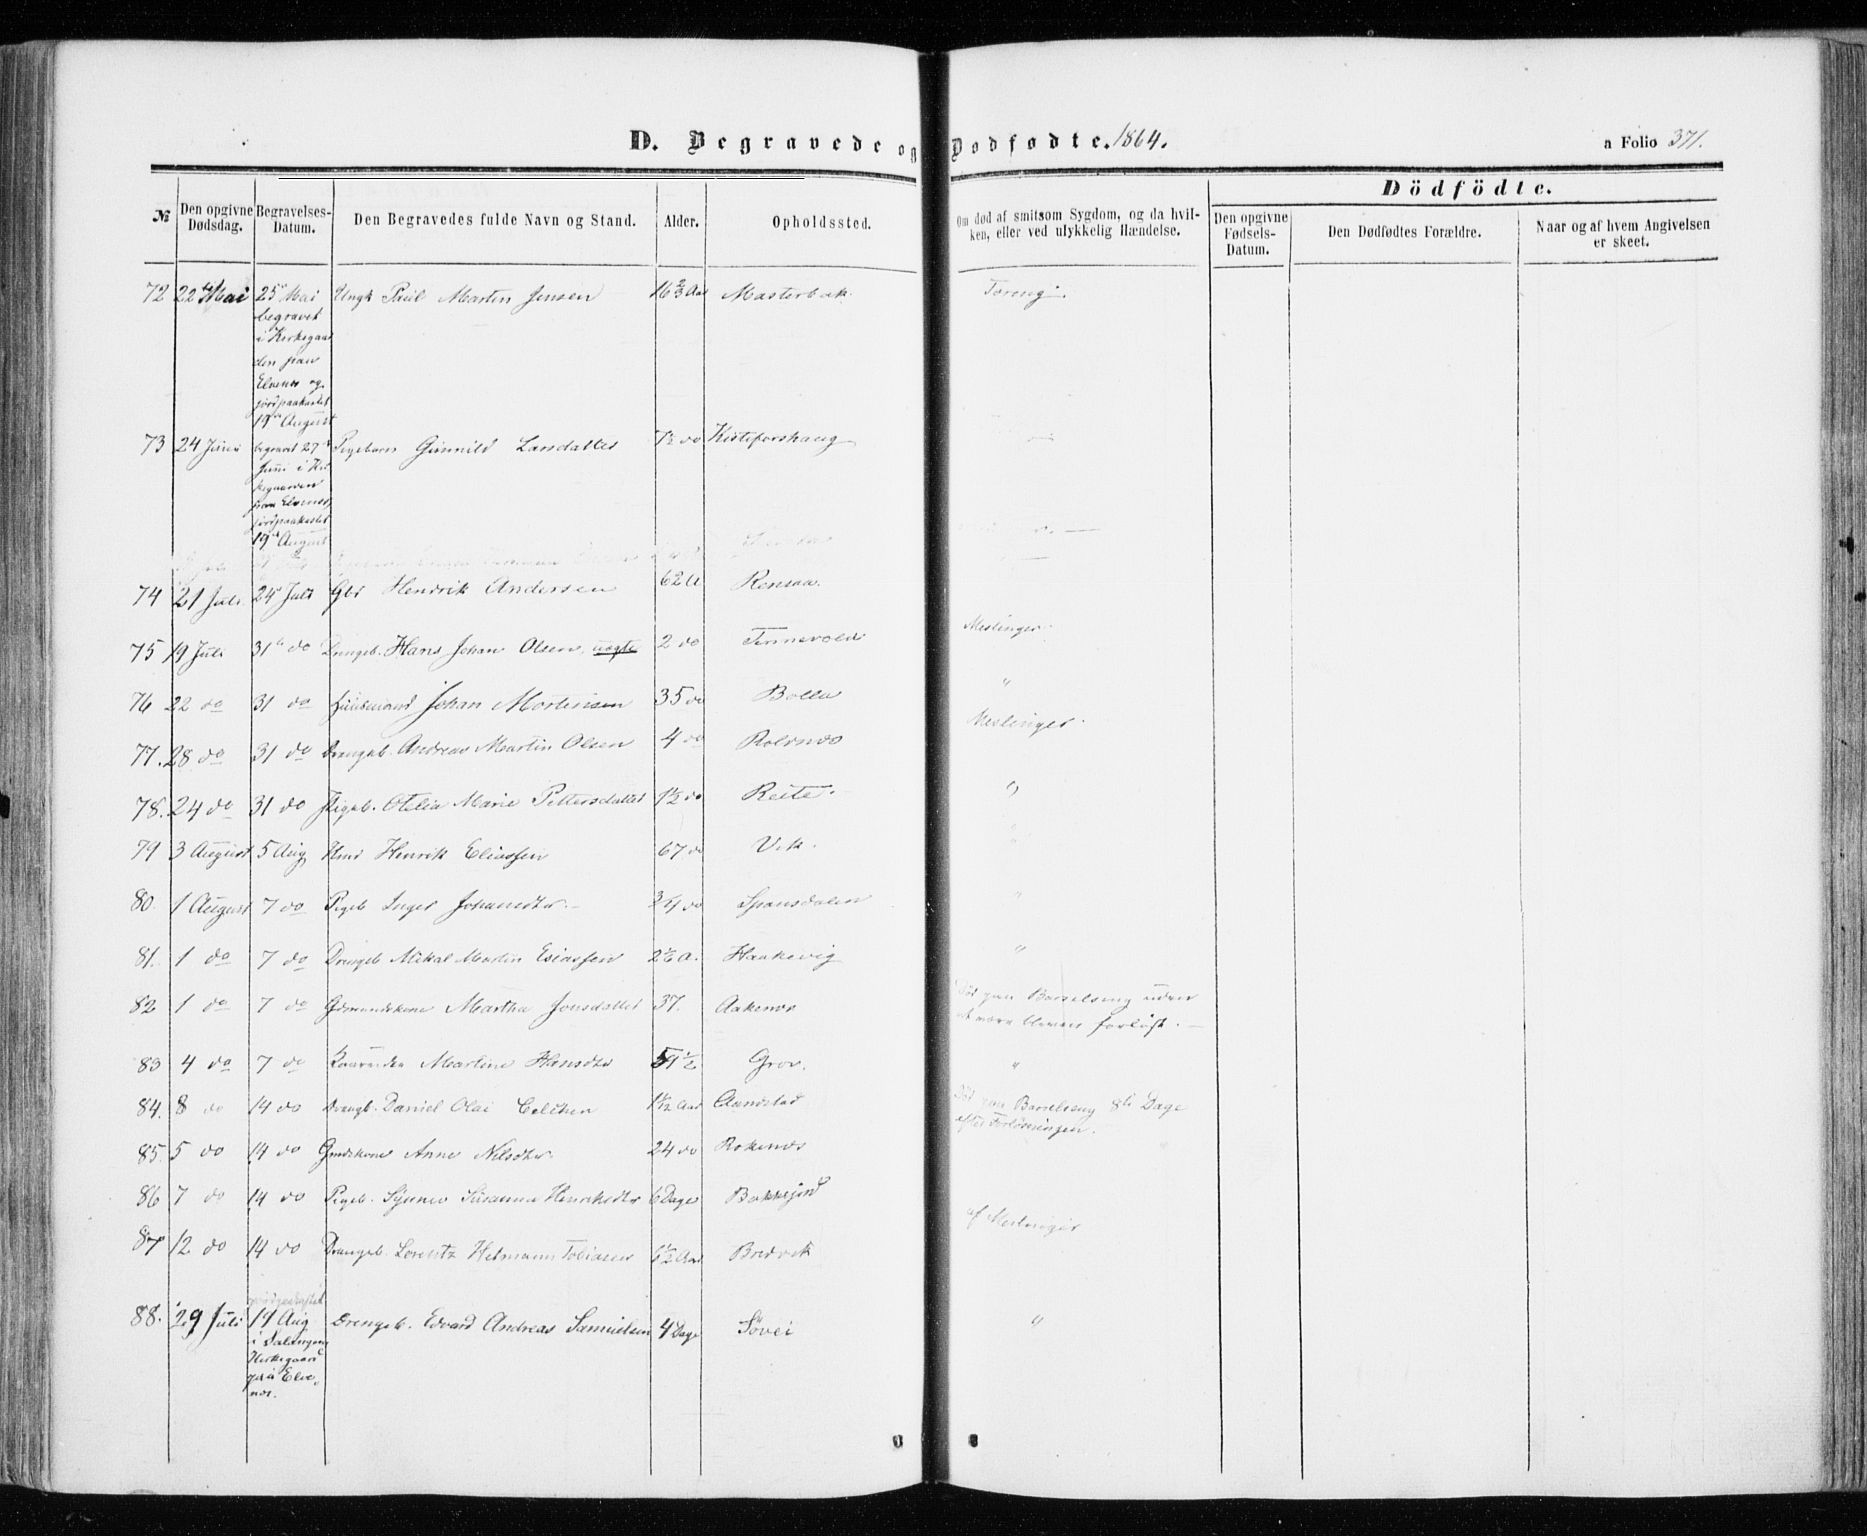 D. Begravede og Dødfødte. 1864.
a Folio 371.
№
Den opgivne Dødsdag.
Begravelses-Datum.
Den Begravedes fulde Navn og Stand.
Alder.
Opholdssted.
Om død af smitsom Sygdom, og da hvilken, eller ved ulykkelig Hændelse.
Dödfödte.
Den opgivne Fødsels-Datum.
Den Dødfødtes Forældre.
Naar og af hvem Angivelsen er skeet.
72 22 Mai 25 Mai Ungk Paul Martin Jensen 16 2/3 Aar Masterbak.
begravet
i Kirkegaar
den paa
Elvenes og
jordpaakastet
19 August
73 24 Juni begravet 27 Pigebarn Gunnild Larsdatter 7½ do Kisteforshaug
Juni i Kir
kegaarden
paa Elvenes,
jordpaakastet
19 August
74 21 Juli 24 Juli Gbr Hendrik Andersen 62 A Rensaa.
75 19 Juli 31 do Drengeb. Hans Johan Olsen, uægte 2 do Tennevold Meslinger.
76 22 do 31 do Huusmand Johan Mortensen 35 do Bolla "
77. 28 do 31 do Drengeb. Andreas Martin Olsen 4 do Roldnæs Meslinger.
78. 24 do 31 do Pigeb. Otelia Marie Pettersdatter 1½ do Reite. "
79 3 August 5 Aug Henrik Eliassen 67 do Vik. "
80. 1 August 7 do Pigeb Inger Johansdtr. do Spansdalen "
81. 1 do 7 do Drengeb Mikal Martin Esiassen A. Haakevig "
82 1 do 7 do Gdmandskone Martha Jonsdatter 37. Aakenes Død paa Barselseng uden
at være bleven forløst.
83 4 do 7 do Martine Hansdtr Grov. "
84. 8 do 14 do Drengb. Daniel Olai Aar Aanstad Død paa Barselseng 8 Dage
efter Forløsningen.
85. 5 do 14 do Gmdskone Anne Nilsdtr. 24 do Rokenes
86 7 do 14 do Pigeb. Susanna Henrikedtr 6 Dage
87 12 do 14 do Drengeb. Lorentz Hetmann Tobiasen 6½ Aar Bredvik af Meslinger
88. 29 Juli 14 Aug Drengeb. Edvard Andreas Samuelsen 4 Dage Søvei "
i Salangens
Kirkegaard
paa Elve
næs.